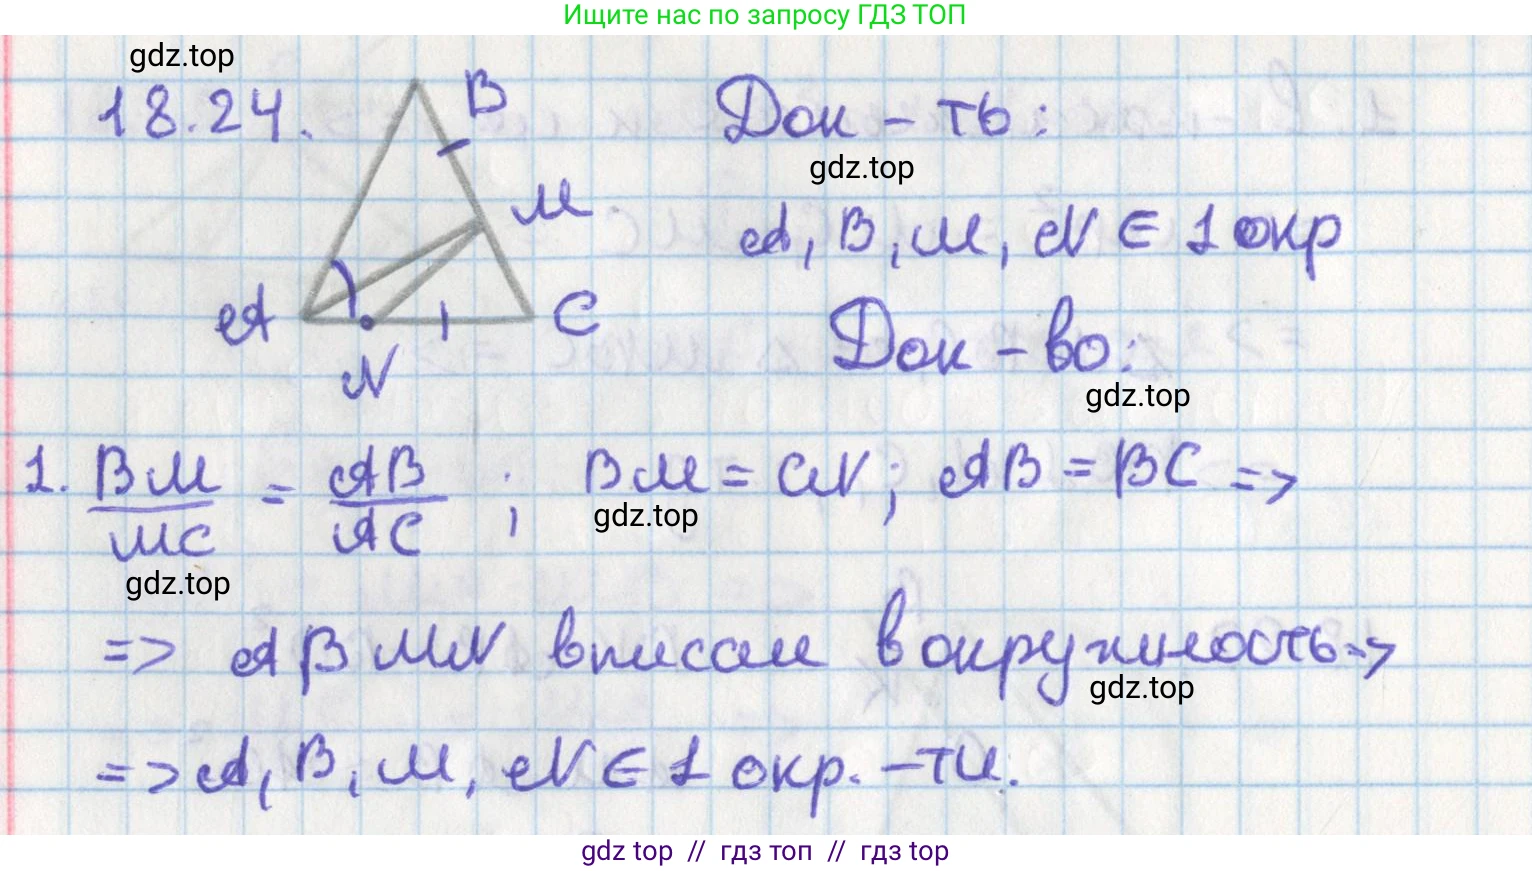 Ищите нас по запросу ГДЗ ТОП
gdz.top
18.24.
B
M
A
C
N
Док-ть:
gdz.top
A, B, M, N ∈ 1 окр
Док-во:
gdz.top
1. BM/MC = AB/AC ; BM = CN; AB = BC =>
gdz.top
gdz.top
=> ABMN вписан в окружность =>
gdz.top
=> A, B, M, N ∈ 1 окр. -ти.
gdz top // гдз топ // gdz top